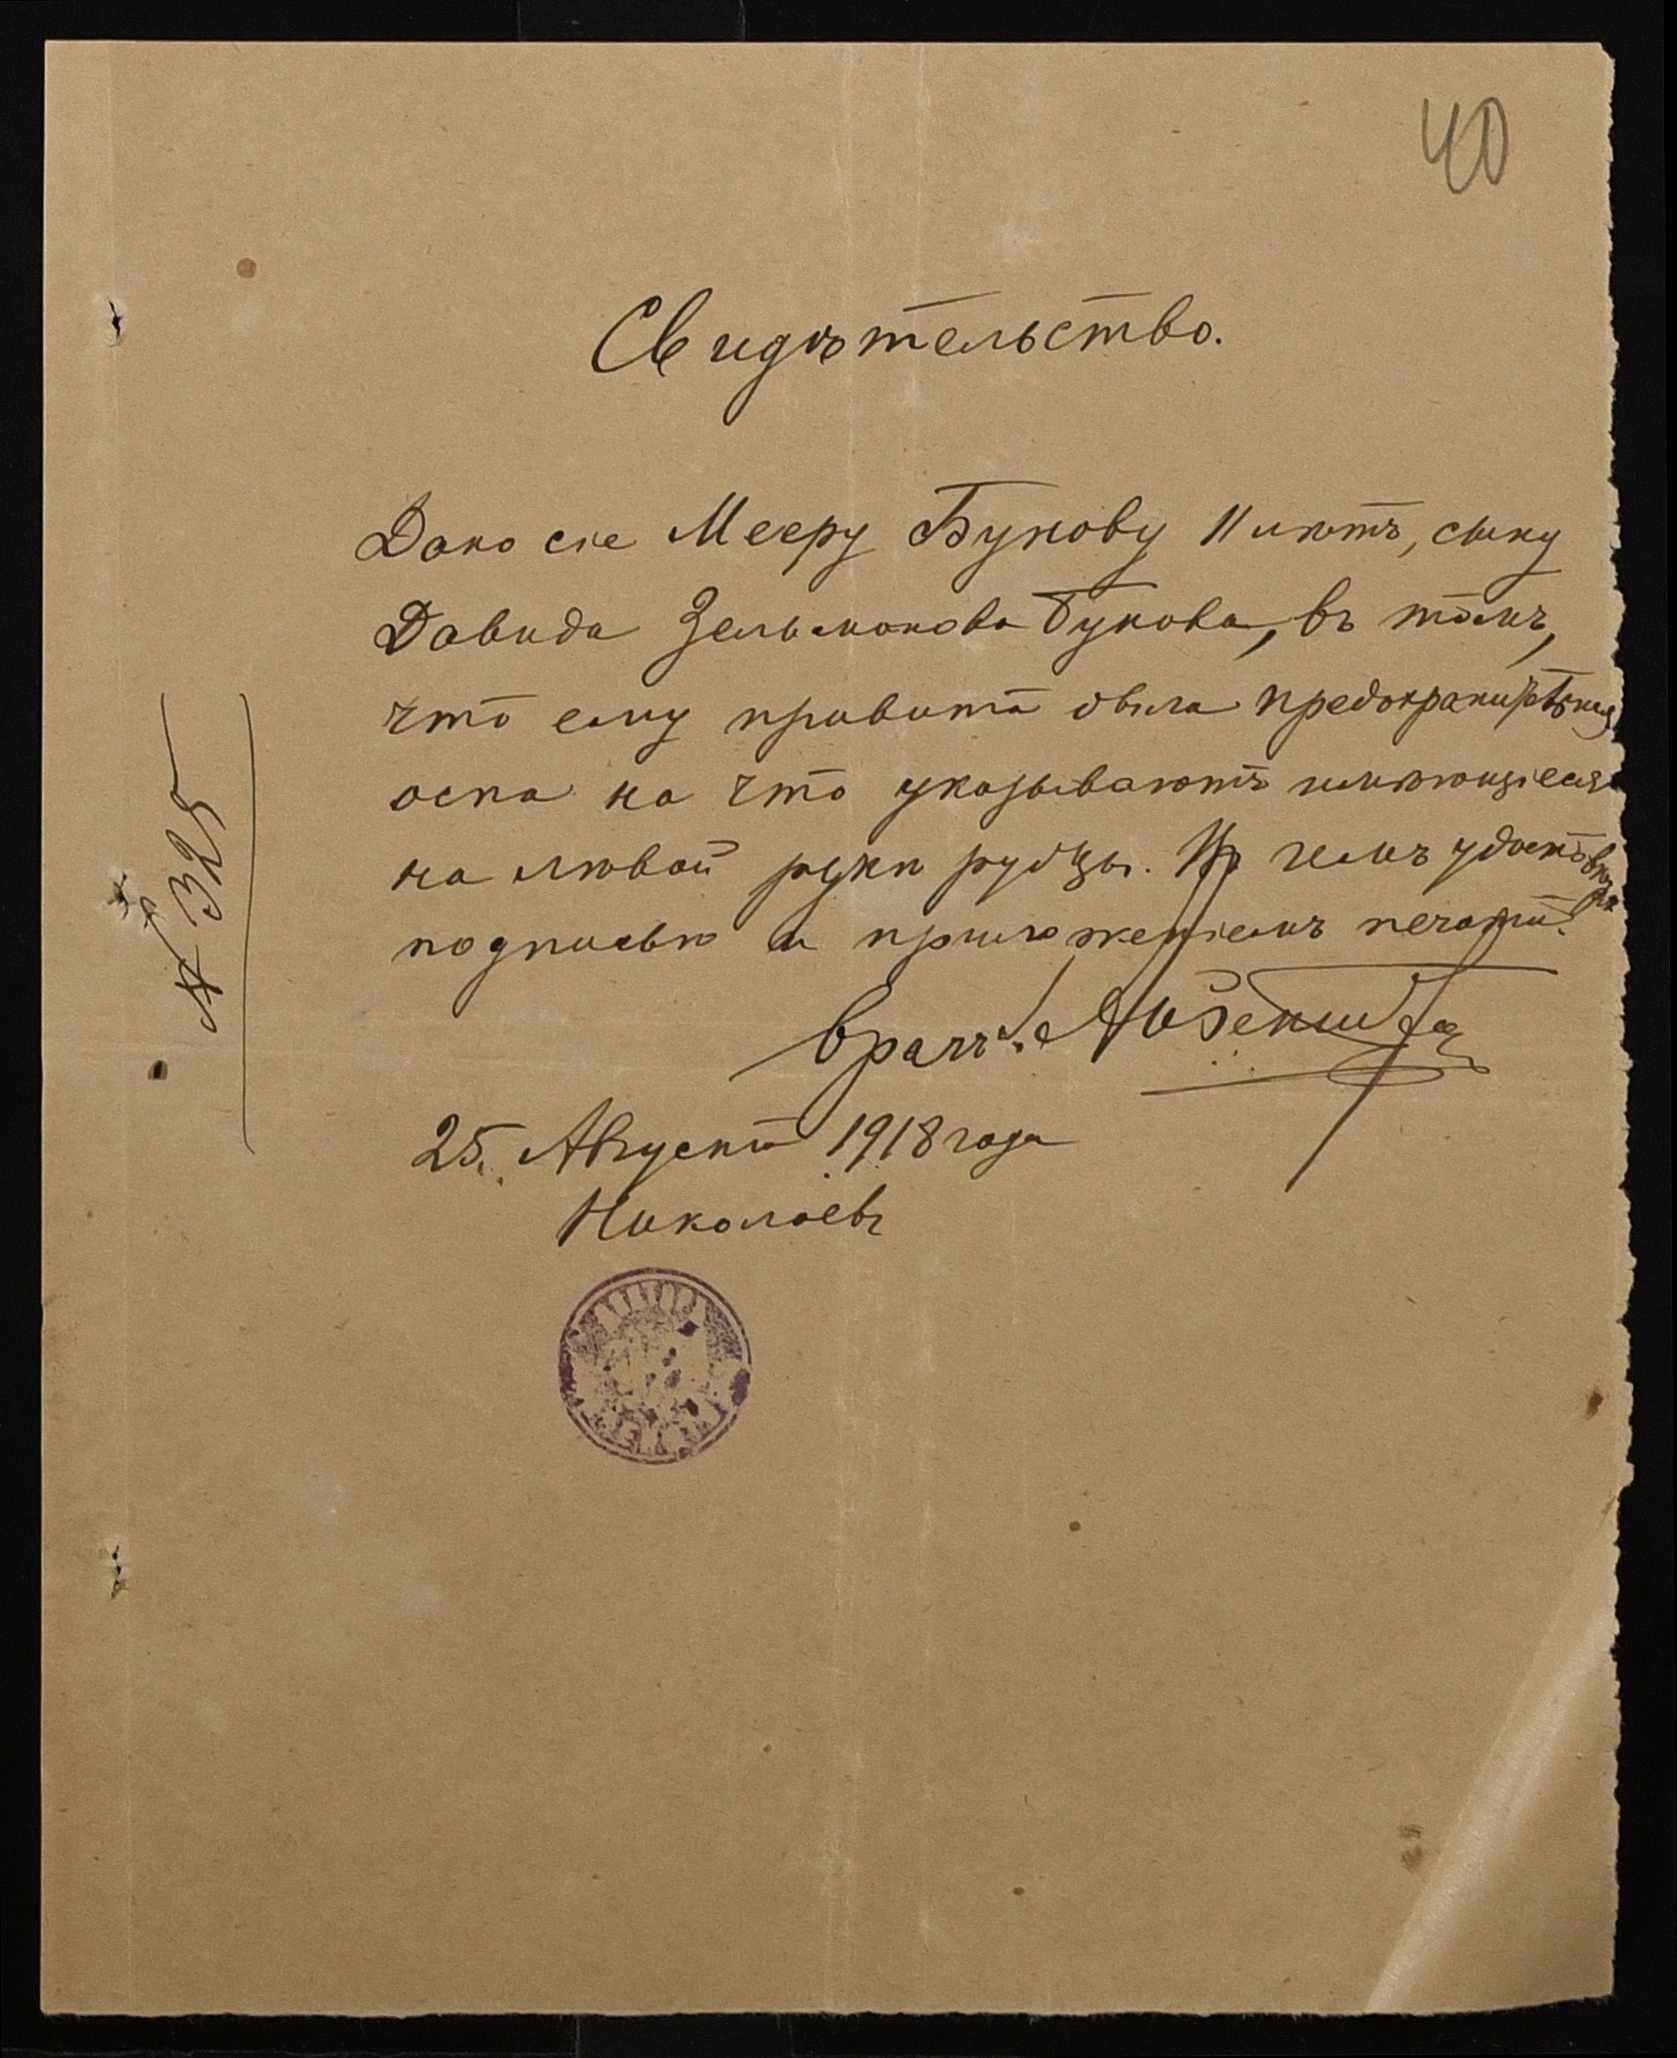 40
Свидѣтельство.
Дано сіе Мееру Букову 11 лѣтъ, сыну
Давида Зельманова Букова, въ томъ,
что ему привита была предохранительная
оспа на что указываютъ имѣющіеся
на лѣвой рукѣ рубцы. Въ чемъ удостовѣряю
подписью и приложеніемъ печати.
Врачъ
25 Августа 1918 года
Николаевъ
№ 325